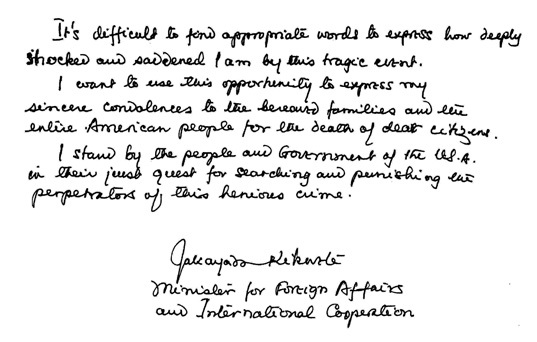 It's difficult to find appropriate words to express how deeply
shocked and saddened I am by this tragic event.
I want to use this opportunity to express my
sincere condolences to the bereaved families and the
entire American people for the death of dear citizens.
I stand by the people and Government of the U.S.A.
in their just quest for searching and punishing the
perpetrators of this henious crime.
Jakaya Kikwete
Minister for Foreign Affairs
and International Cooperation